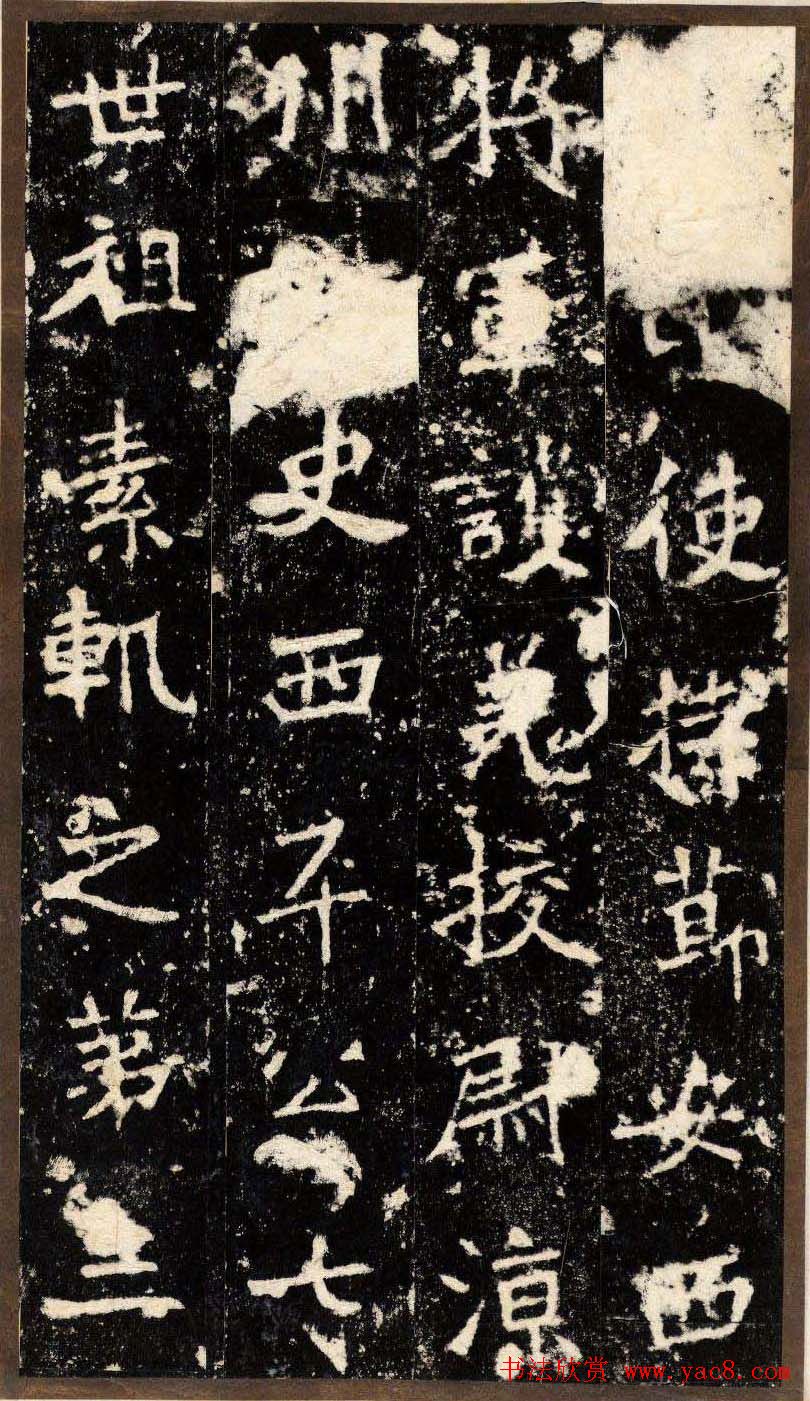 使持莭安西
將軍護羌挍尉涼
州史西平公七
世祖素軌之苐三
书法欣赏 www.yac8.com